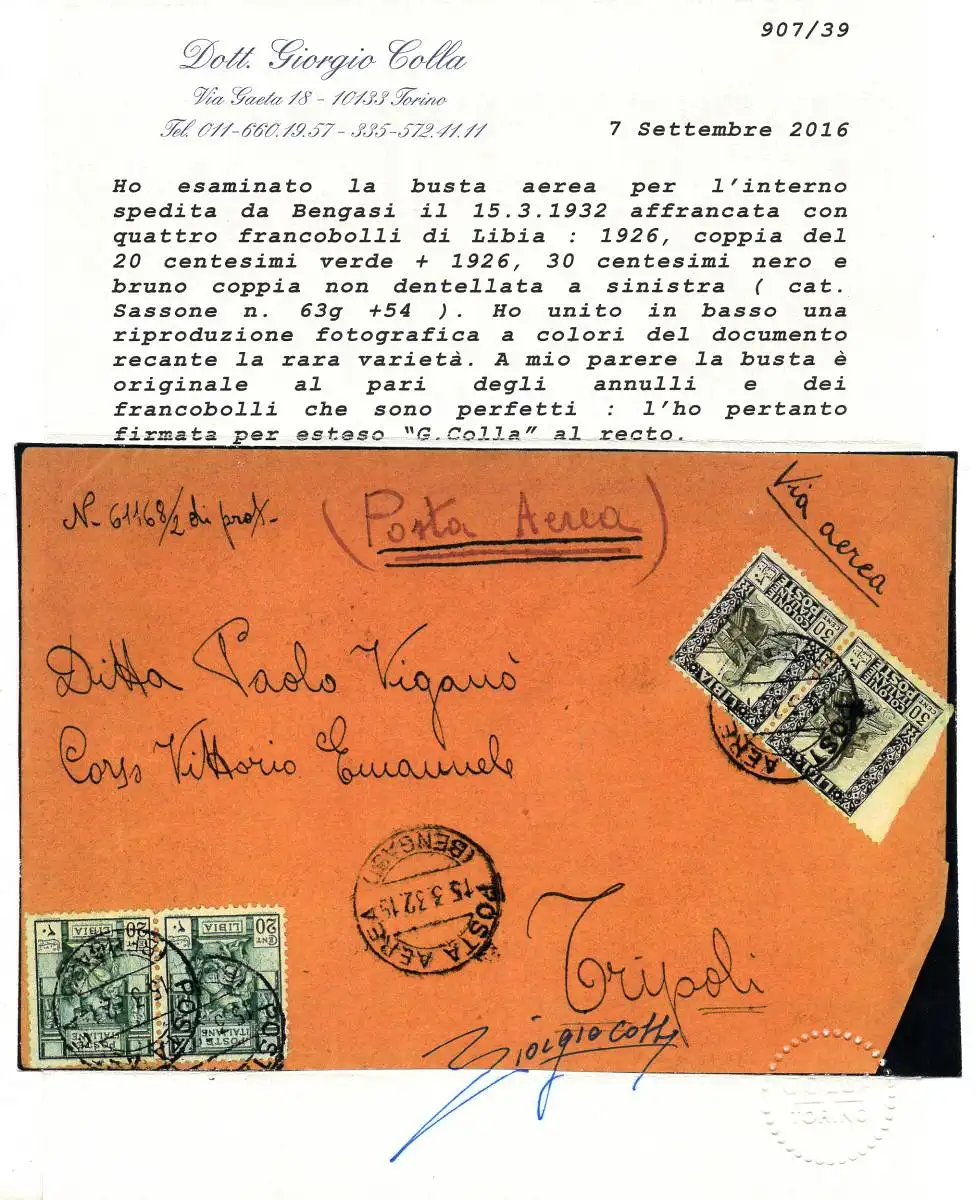 907/39
Dott. Giorgio Colla
Via Gaeta 18 - 10133 Torino
Tel. 011-660.19.57 - 335-572.11.11
7 Settembre 2016
Ho esaminato la busta aerea per l'interno
spedita da Bengasi il 15.3.1932 affrancata con
quattro francobolli di Libia : 1926, coppia del
20 centesimi verde + 1926, 30 centesimi nero e
bruno coppia non dentellata a sinistra ( cat.
Sassone n. 63g +54 ). Ho unito in basso una
riproduzione fotografica a colori del documento
recante la rara varietà. A mio parere la busta è
originale al pari degli annulli e dei
francobolli che sono perfetti : l'ho pertanto
firmata per esteso "G.Colla" al recto.
N- 61168/2 di prot-
(Posta Aerea)
Via aerea
COLONIE ITALIANE
POSTE
30 CENT
LIBIA
COLONIE ITALIANE
POSTE
30 CENT
LIBIA
Ditta Paolo Viganò
Corso Vittorio Emanuele
Tripoli
POSTA AEREA
(BENGASI)
15.3.32.19
20 CENT
LIBIA
POSTE ITALIANE
20 CENT
LIBIA
POSTE ITALIANE
Giorgio Colla
TORINO